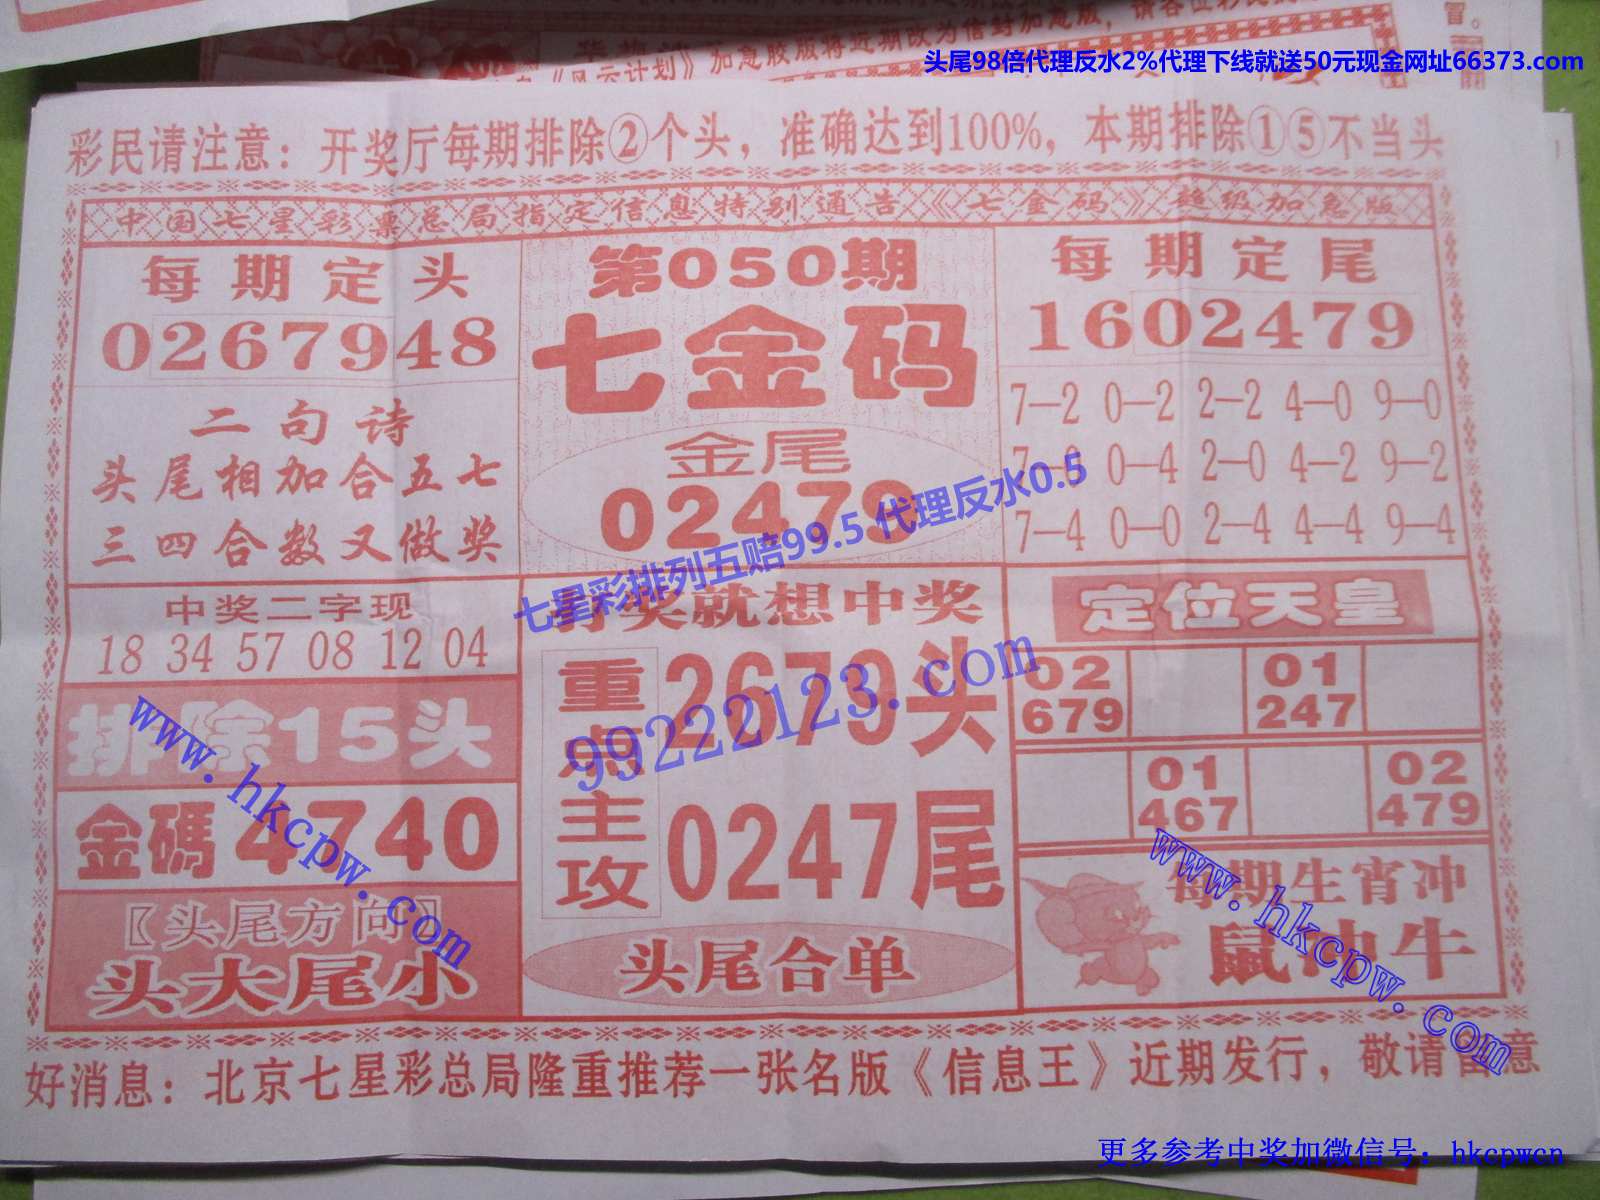 加急胶版将近期改为信封加急版，请各位彩民
《风云计划》
冒。
头尾98倍代理反水2%代理下线就送50元现金网址66373.com
彩民请注意：开奖厅每期排除②个头，准确达到100%，本期排除①⑤不当头
中国七星彩票总局指定信息特别通告《七金码》超级加急版
每期定头
0267948
二句诗
头尾相加合五七
三四合数又做奖
第050期
七金码
金尾
02479
每期定尾
1602479
7—2 0—2 2—2 4—0 9—0
7—0 0—4 2—0 4—2 9—2
7—4 0—0 2—4 4—4 9—4
七星彩排列五赔99.5 代理反水0.5
99222123.com
中奖二字现
18 34 57 08 12 04
排除15头
金碼4740
〖头尾方向〗
头大尾小
奖就想中奖
重点主攻
2679头
0247尾
头尾合单
定位天皇
02 679
01 247
01 467
02 479
每期生宵冲
鼠冲牛
www.hkcpw.com
www.hkcpw.com
好消息：北京七星彩总局隆重推荐一张名版《信息王》近期发行，敬请留意
更多参考中奖加微信号：hkcpwcn